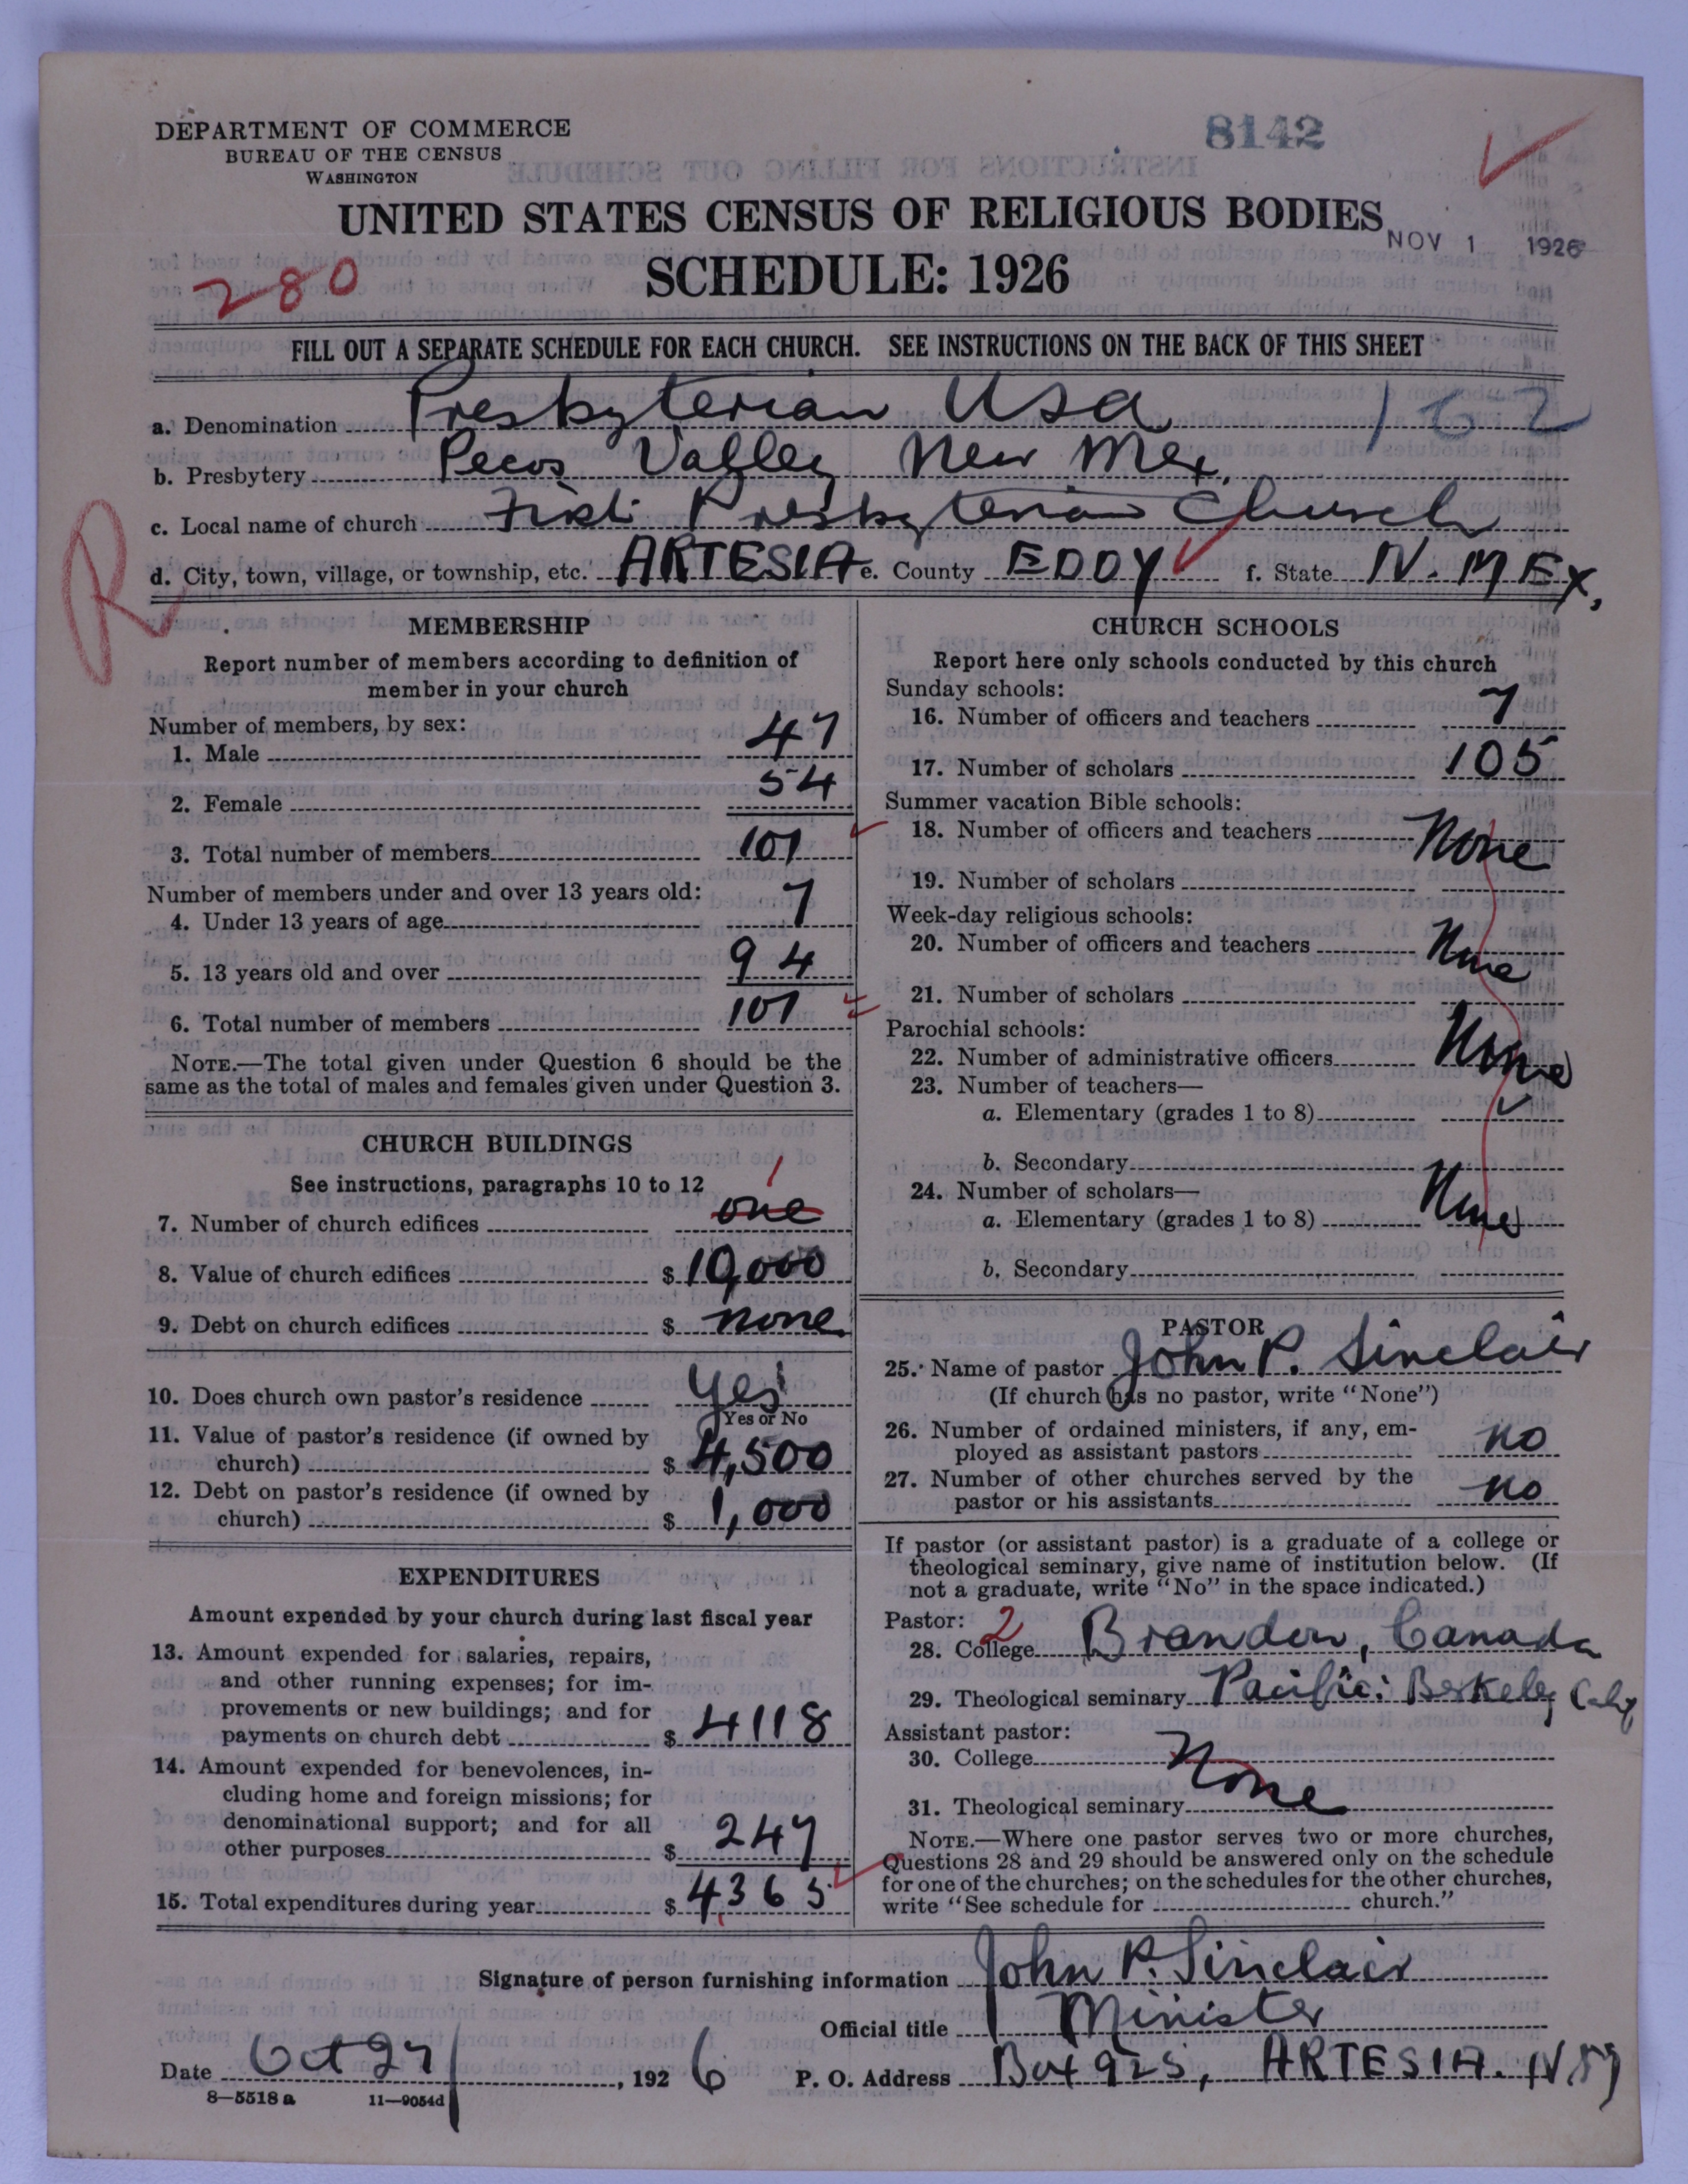 DEPARTMENT OF COMMERCE
BUREAU OF THE CENSUS
WASHINGTON
8142
UNITED STATES CENSUS OF RELIGIOUS BODIES
NOV 1 1926
SCHEDULE: 1926
280
FILL OUT A SEPARATE SCHEDULE FOR EACH CHURCH. SEE INSTRUCTIONS ON THE BACK OF THIS SHEET
a. Denomination Presbyterian Usa 162
b. Presbytery Pecos Valley New Mex.
c. Local name of church First Presbyterian Church
R
d. City, town, village, or township, etc. ARTESIA e. County EDDY f. State N. MEx.
MEMBERSHIP
Report number of members according to definition of
member in your church
Number of members, by sex:
1. Male 47
2. Female 54
3. Total number of members 101
Number of members under and over 13 years old:
4. Under 13 years of age 7
5. 13 years old and over 94
6. Total number of members 101
NOTE.—The total given under Question 6 should be the
same as the total of males and females given under Question 3.
CHURCH BUILDINGS
See instructions, paragraphs 10 to 12
1
7. Number of church edifices one
8. Value of church edifices $ 10,000
9. Debt on church edifices $ none.
10. Does church own pastor's residence Yes
Yes or No
11. Value of pastor's residence (if owned by
church) $ 4,500
12. Debt on pastor's residence (if owned by
church) $ 1,000
EXPENDITURES
Amount expended by your church during last fiscal year
13. Amount expended for salaries, repairs,
and other running expenses; for im-
provements or new buildings; and for
payments on church debt $ 4118
14. Amount expended for benevolences, in-
cluding home and foreign missions; for
denominational support; and for all
other purposes $ 247
15. Total expenditures during year $ 4,365
CHURCH SCHOOLS
Report here only schools conducted by this church
Sunday schools:
16. Number of officers and teachers 7
17. Number of scholars 105
Summer vacation Bible schools:
18. Number of officers and teachers None
19. Number of scholars
Week-day religious schools:
20. Number of officers and teachers None
21. Number of scholars
Parochial schools:
22. Number of administrative officers None
23. Number of teachers—
a. Elementary (grades 1 to 8)
b. Secondary
24. Number of scholars—
a. Elementary (grades 1 to 8) None
b. Secondary
PASTOR
25. Name of pastor John P. Sinclair
(If church has no pastor, write "None")
26. Number of ordained ministers, if any, em-
ployed as assistant pastors no
27. Number of other churches served by the
pastor or his assistants no
If pastor (or assistant pastor) is a graduate of a college or
theological seminary, give name of institution below. (If
not a graduate, write "No" in the space indicated.)
Pastor: 2
28. College Brandon, Canada
29. Theological seminary Pacific: Berkeley Calif
Assistant pastor:
30. College None
31. Theological seminary
NOTE.—Where one pastor serves two or more churches,
Questions 28 and 29 should be answered only on the schedule
for one of the churches; on the schedules for the other churches,
write "See schedule for church."
Signature of person furnishing information John P. Sinclair
Official title Minister
Date Oct 27, 1926 P. O. Address Box 925, ARTESIA. N
8—5518 a 11—9054d